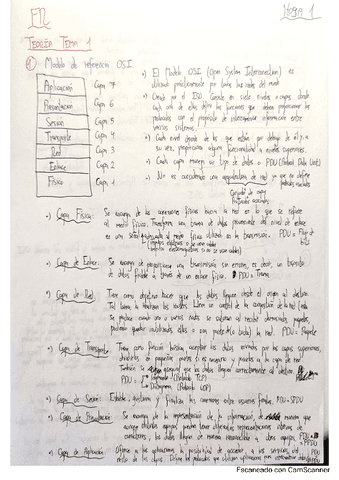 Hoja 1
TEORÍA TEMA 1
Modelo de referencia OSI
Aplicación Capa 7
Presentación Capa 6
Sesión Capa 5
Transporte Capa 4
Red Capa 3
Enlace Capa 2
Física Capa 1
El Modelo OSI (Open System Interconnection) es
utilizado prácticamente por todas las redes del mundo
Creado por el ISO. Consta en siete niveles o capas donde
cada una de ellas define las funciones que deben proporcionar los
protocolos con el propósito de intercambiar información entre
varios sistemas.
Cada nivel depende de los que están por debajo de él, y a
su vez, proporciona alguna funcionalidad a niveles superiores.
Cada capa maneja un tipo de datos = PDU
No es considerado una arquitectura de red ya que no define
Capa Física: Se encarga de las conexiones físicas hacia la red en lo que se refiere
al medio físico. Transforma una trama de datos proveniente del nivel de enlace
en una señal al medio físico utilizado en la transmisión. PDU = Flujo de bits
Capa de Enlace: Se encarga de proporcionar una transmisión sin errores, es decir, un tránsito
de datos fiable a través de un enlace físico. PDU = Trama
Capa de Red: Tiene como objetivo hacer que los datos lleguen desde el origen al destino
PDU = Paquete
Capa de Transporte: Tiene como función básica aceptar los datos enviados por las capas superiores,
dividirlos en pequeñas partes si es necesario y pasarlos a la capa de red.
También se asegura que los datos lleguen correctamente al destino.
PDU = Segmento (Protocolo TCP)
Datagrama (Protocolo UDP)
Capa de Sesión: Establece, gestiona y finaliza las conexiones entre usuarios finales. PDU = SPDU
Capa de Presentación: Se encarga de la representación de la información, de manera que
aunque distintos equipos puedan tener diferentes representaciones internas de
caracteres, los datos lleguen de manera reconocible a otros equipos PDU = PPDU
Capa de Aplicación: Ofrece a las aplicaciones la posibilidad de acceder a los servicios del
resto de las capas. Define los protocolos que utilizan
Escaneado con CamScanner